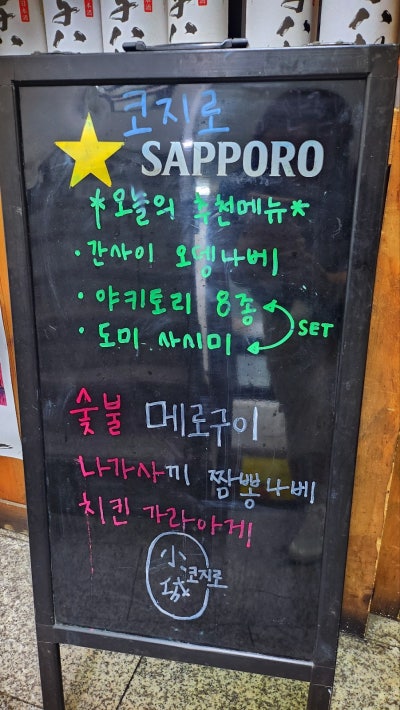 코지로
SAPPORO
*오늘의 추천메뉴*
· 간사이 오뎅나베
· 야키토리 8종
· 도미 사시미
SET
숯불 메로구이
나가사끼 짬뽕나베
치킨 가라아게
小
城 코지로